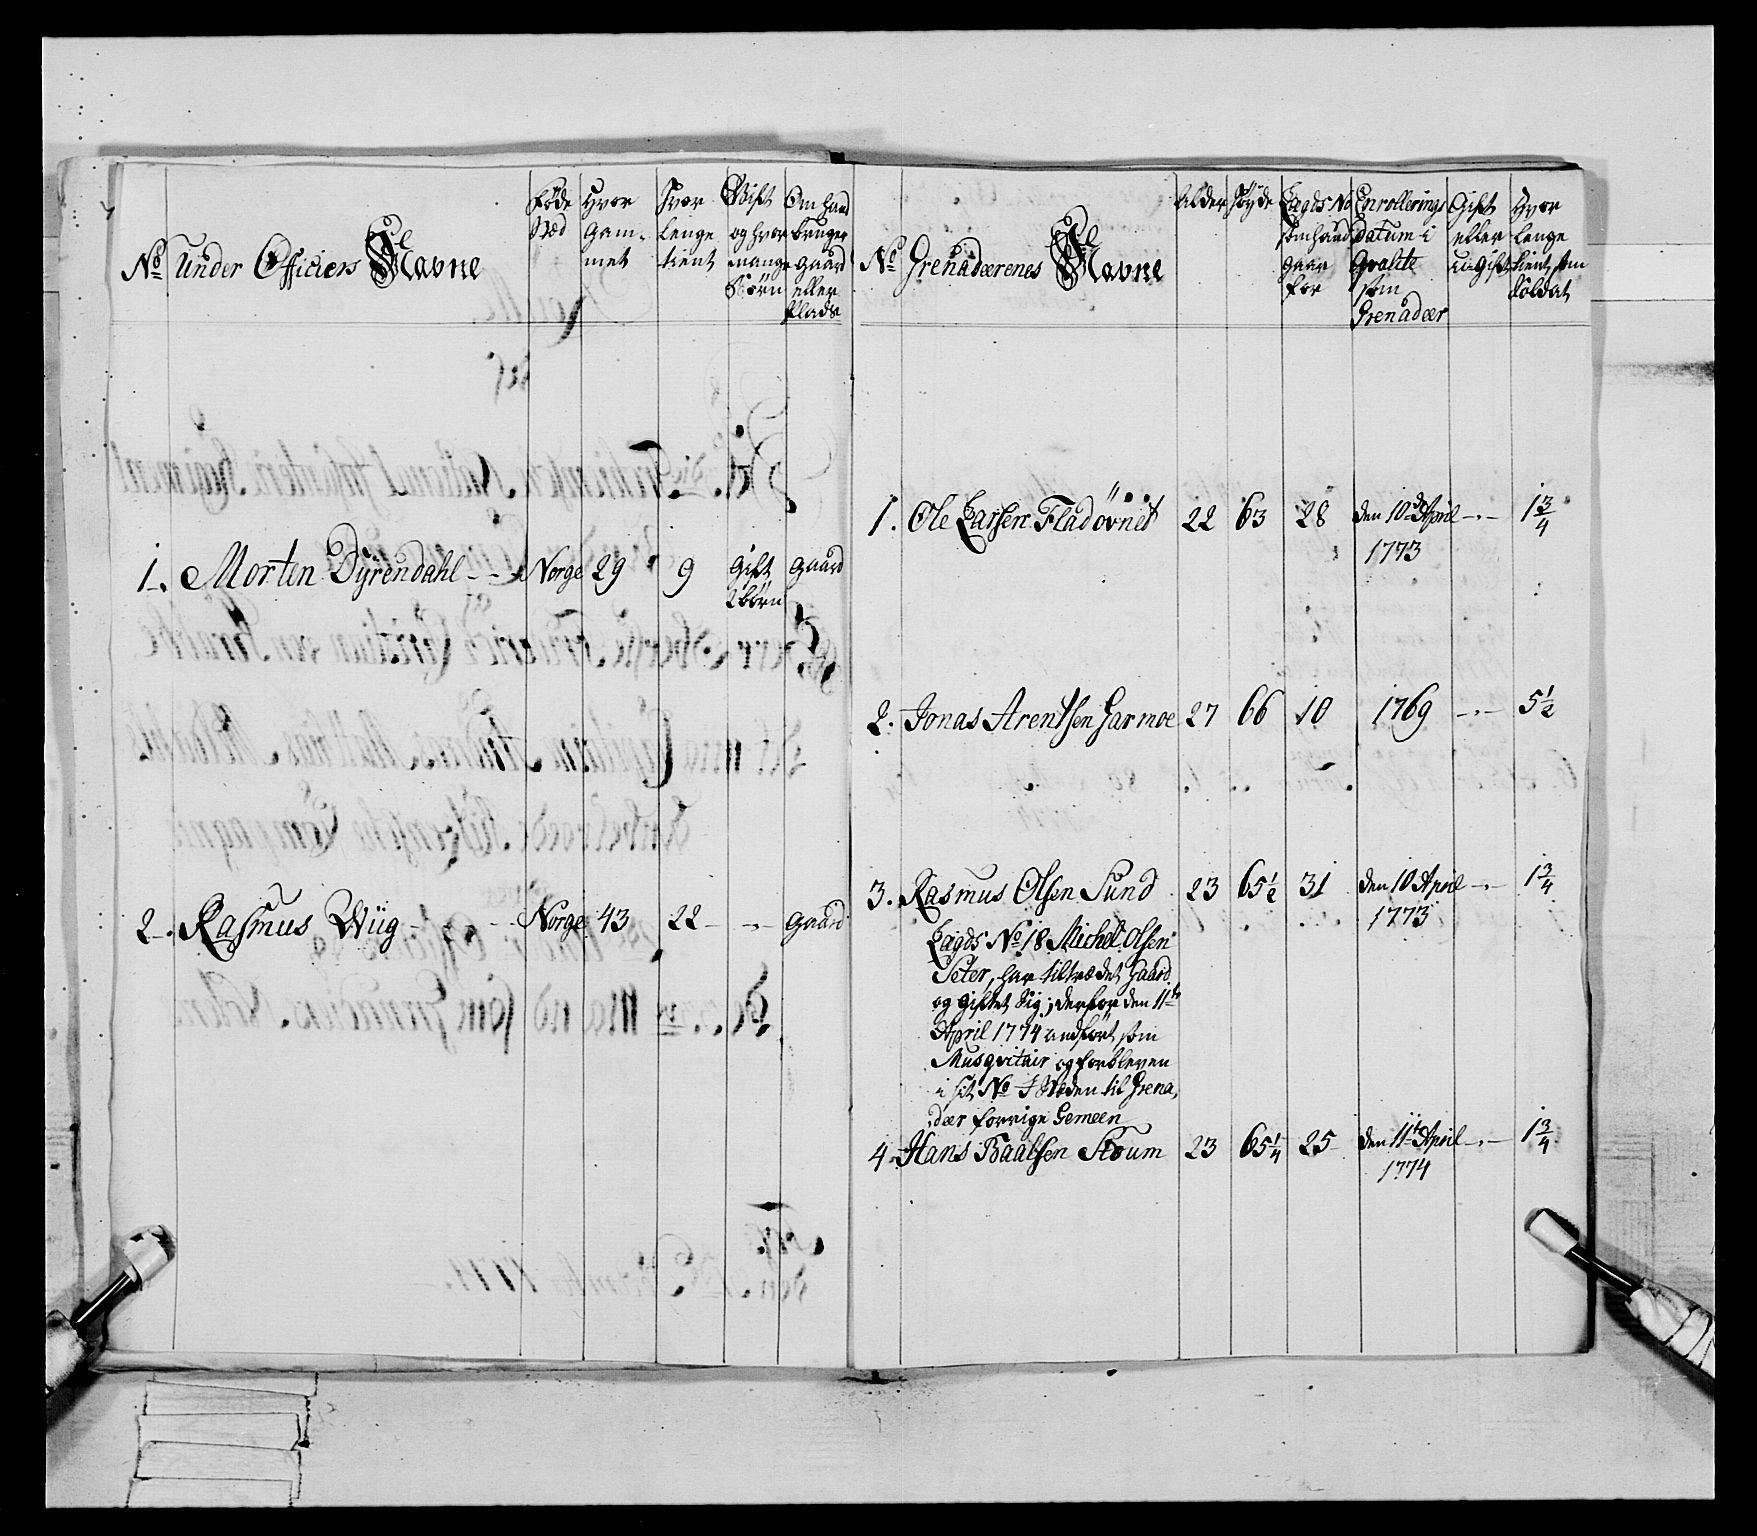 No Under Officiers Navne
føde Stæd
Hvor Gam-met
Hvor Lenge tient
Gift og hvor mange Børn
Om hand bruger gaard eller Plads
1. Morten Dyrendahl - - Norge 29 9 Gift 2 børn gaard
2. Rasmus Wiig - - Norge 43 22 - - gaard
No Grenadeerenes Navne
Alder
Høyde
Lægds No som hand gaar for
Enrollerings Datum i Qvalite som Grenadeer
Gift eller u-Gift
Hvor lenge tient som Soldat
1. Ole Larsen Fladövnet 22 63 28 den 10de April 1773 -.- 1 3/4
2. Jonas Arentsen Garmoe 27 66 10 1769 -.- 5 1/2
3. Rasmus Olsen Sund 23 65 1/2 31 den 10 April 1773 -.- 1 3/4
Lægds No 18 Michel Olsen
Seter, har tiltrædet gaard
og giftet sig, derfor den 11te
April 1774 andfört som
Musqvitair og forbleven
i sit No i Steden til Grena,
dær forrige Gemeen
4. Hans Paalsen Stoum 23 65 1/4 25 den 11te April 1774 -.- 1 3/4